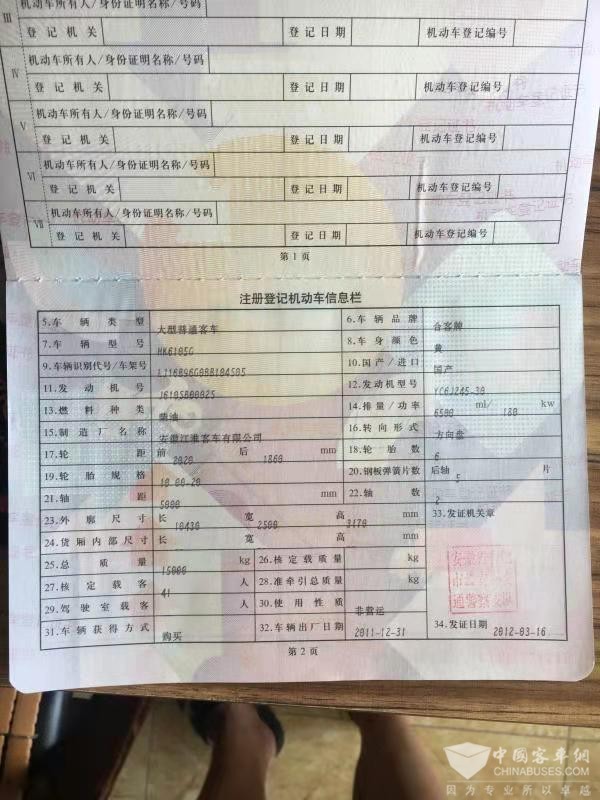 机动车所有人/身份证明名称/号码
III 登记机关 登记日期 机动车登记编号
机动车所有人/身份证明名称/号码
IV 登记机关 登记日期 机动车登记编号
机动车所有人/身份证明名称/号码
V 登记机关 登记日期 机动车登记编号
机动车所有人/身份证明名称/号码
VI 登记机关 登记日期 机动车登记编号
机动车所有人/身份证明名称/号码
VII 登记机关 登记日期 机动车登记编号
第1页
注册登记机动车信息栏
5.车辆类型 大型普通客车 6.车辆品牌 合客牌
7.车辆型号 HK6105G 8.车身颜色 黄
9.车辆识别代号/车架号 10.国产/进口 国产
11.发动机号 J6105B00025 12.发动机型号 YC6J245-30
13.燃料种类 柴油 14.排量/功率 6500 ml/ 180 kw
15.制造厂名称 安徽江淮客车有限公司 16.转向形式 方向盘
17.轮距 前 2020 后 1860 mm 18.轮胎数 6
19.轮胎规格 10.00-20 20.钢板弹簧片数 后轴 5 片
21.轴距 5000 mm 22.轴数 2
23.外廓尺寸 长 10430 宽 2500 高 3170 mm 33.发证机关章
24.货厢内部尺寸 长 宽 高 mm
25.总质量 15000 kg 26.核定载质量 kg
27.核定载客 41 人 28.准牵引总质量 kg
29.驾驶室载客 人 30.使用性质 非营运
31.车辆获得方式 购买 32.车辆出厂日期 2011-12-31 34.发证日期 2012-03-16
第2页
中國客车網
CHINABUSES.COM
因为专业所以卓越